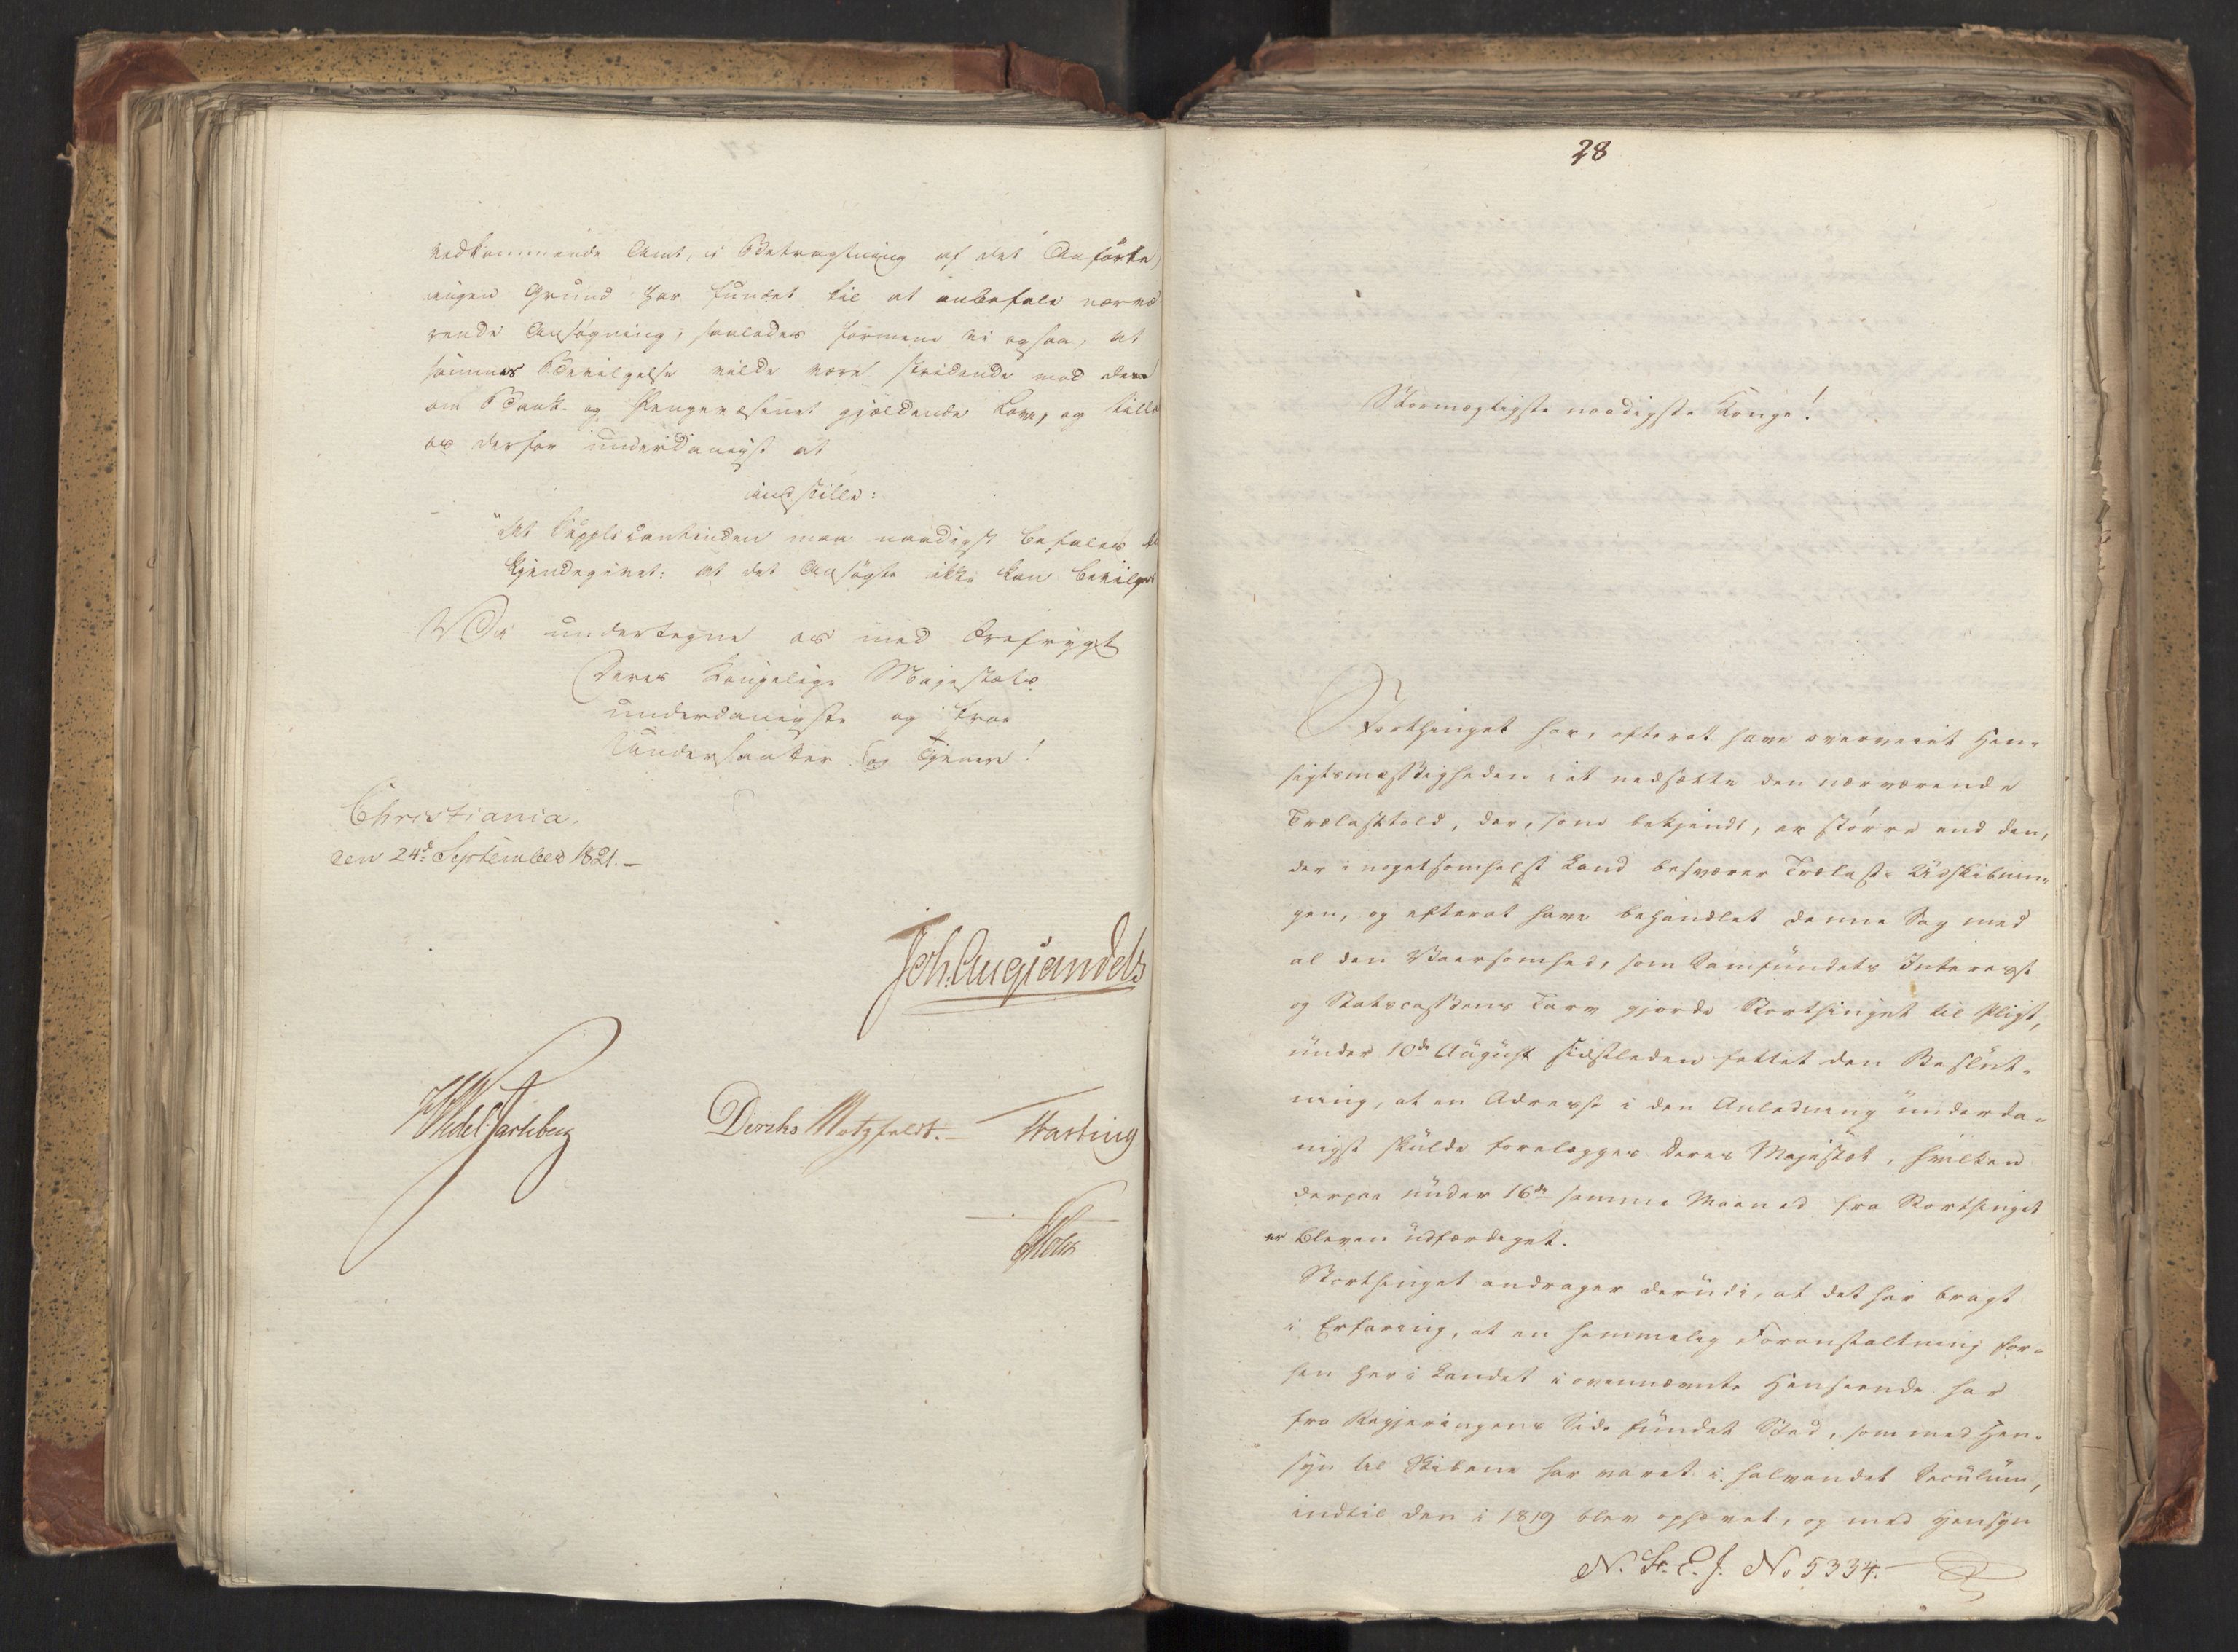 vedkommende Amt, i Betragtning af det Anførte,
ingen Grund har fundet til at anbefale nærvæ-
rende Ansøgning; saaledes formene vi ogsaa, at
sammes Bevilgelse vilde være stridende mod den
om Bank- og Pengevæsenet gjældende Lov, og
os derfor underdanigst at
indstille:
"At Supplicantinden maa naadigst befales
tilkjendegivet: at det Ansøgte ikke kan bevilges
Vi undertegne os med Ærefrygt
Deres Kongelige Majestæts
underdanigste og troe
Undersaatter og Tjenere!
Christiania,
den 24d September 1821.—
Joh. Aug Sandels
HWedel Jarlsberg Diriks Motzfeldt.— Fasting
Holst
28
Stormægtigste naadigste Konge!
Storthinget har, efterat have overveiet Hen-
sigtsmæssigheden i at nedsætte den nærværende
Trælasttold, der, som bekjendt, er større end den,
der i nogetsomhelst Land besværer Trælast-Udskibnin-
gen, og efterat have behandlet denne Sag med
al den Varsomhed, som Samfundets Interesse
og Statscassens Tarv gjorde Storthinget til Pligt,
under 10de August sidstleden fattet den Beslut-
ning, at en Adresse i den Anledning underda-
nigst skulde forelægges Deres Majestæt, hvilken
derpaa under 16de samme Maaned fra Storthinget
er bleven udfærdiget.
Storthinget andrager derudi, at det har bragt
i Erfaring, at en hemmelig Foranstaltning for-
hen her i Landet i ovennævnte Henseende har
fra Regjeringens Side fundet Sted, som med Hen-
syn til Skibene har varet i halvandet Seculum,
indtil den i 1819 blev ophævet, og med Hensyn
No 5334.—